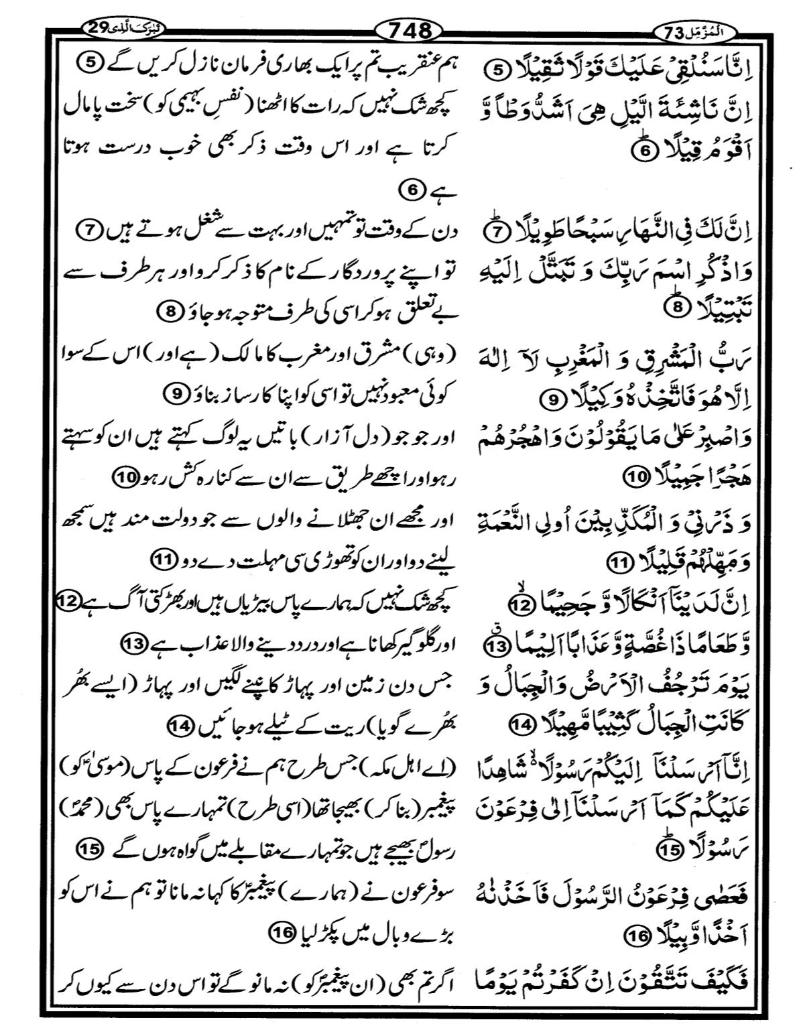 المزمل 73
748
تبٰرک الذی 29
اِنَّا سَنُلْقِیْ عَلَیْكَ قَوْلًا ثَقِیْلًا 5
ہم عنقریب تم پر ایک بھاری فرمان نازل کریں گے 5
اِنَّ نَاشِئَةَ الَّیْلِ هِیَ اَشَدُّ وَطْاً وَّ
اَقْوَمُ قِیْلًا 6
کچھ شک نہیں کہ رات کا اٹھنا (نفسِ بہیمی کو) سخت پامال
کرتا ہے اور اس وقت ذکر بھی خوب درست ہوتا
ہے 6
اِنَّ لَكَ فِی النَّهَارِ سَبْحًا طَوِیْلًا 7
دن کے وقت تو تمہیں اور بہت سے شغل ہوتے ہیں 7
وَاذْكُرِ اسْمَ رَبِّكَ وَ تَبَتَّلْ اِلَیْهِ
تَبْتِیْلًا 8
تو اپنے پروردگار کے نام کا ذکر کرو اور ہر طرف سے
بے تعلق ہو کر اسی کی طرف متوجہ ہو جاؤ 8
رَبُّ الْمَشْرِقِ وَ الْمَغْرِبِ لَاۤ اِلٰهَ
اِلَّا هُوَ فَاتَّخِذْهُ وَكِیْلًا 9
(وہی) مشرق اور مغرب کا مالک (ہے اور) اس کے سوا
کوئی معبود نہیں تو اسی کو اپنا کارساز بناؤ 9
وَاصْبِرْ عَلٰی مَا یَقُوْلُوْنَ وَاهْجُرْهُمْ
هَجْرًا جَمِیْلًا 10
اور جو جو (دل آزار) باتیں یہ لوگ کہتے ہیں ان کو سہتے
رہو اور اچھے طریق سے ان سے کنارہ کش رہو 10
وَ ذَرْنِیْ وَ الْمُكَذِّبِیْنَ اُولِی النَّعْمَةِ
وَ مَهِّلْهُمْ قَلِیْلًا 11
اور مجھے ان جھٹلانے والوں سے جو دولت مند ہیں سمجھ
لینے دو اور ان کو تھوڑی سی مہلت دے دو 11
اِنَّ لَدَیْنَاۤ اَنْكَالًا وَّ جَحِیْمًا 12
کچھ شک نہیں کہ ہمارے پاس بیڑیاں ہیں اور بھڑکتی آگ ہے 12
وَّ طَعَامًا ذَا غُصَّةٍ وَّ عَذَابًا اَلِیْمًا 13
اور گلوگیر کھانا ہے اور درد دینے والا عذاب ہے 13
یَوْمَ تَرْجُفُ الْاَرْضُ وَالْجِبَالُ وَ
كَانَتِ الْجِبَالُ كَثِیْبًا مَّهِیْلًا 14
جس دن زمین اور پہاڑ کانپنے لگیں اور پہاڑ (ایسے بھُر
بھُرے گویا) ریت کے ٹیلے ہو جائیں 14
اِنَّاۤ اَرْسَلْنَاۤ اِلَیْكُمْ رَسُوْلًا شَاهِدًا
عَلَیْكُمْ كَمَاۤ اَرْسَلْنَاۤ اِلٰی فِرْعَوْنَ
رَسُوْلًا 15
(اے اہل مکہ) جس طرح ہم نے فرعون کے پاس (موسیٰؑ کو)
پیغمبر (بنا کر) بھیجا تھا (اسی طرح) تمہارے پاس بھی (محمدؐ)
رسولؐ بھیجے ہیں جو تمہارے مقابلے میں گواہ ہوں گے 15
فَعَصٰی فِرْعَوْنُ الرَّسُوْلَ فَاَخَذْنٰهُ
اَخْذًا وَّبِیْلًا 16
سو فرعون نے (ہمارے) پیغمبرؑ کا کہا نہ مانا تو ہم نے اس کو
بڑے وبال میں پکڑ لیا 16
فَكَیْفَ تَتَّقُوْنَ اِنْ كَفَرْتُمْ یَوْمًا
اگر تم بھی (ان پیغمبرؐ کو) نہ مانو گے تو اس دن سے کیوں کر